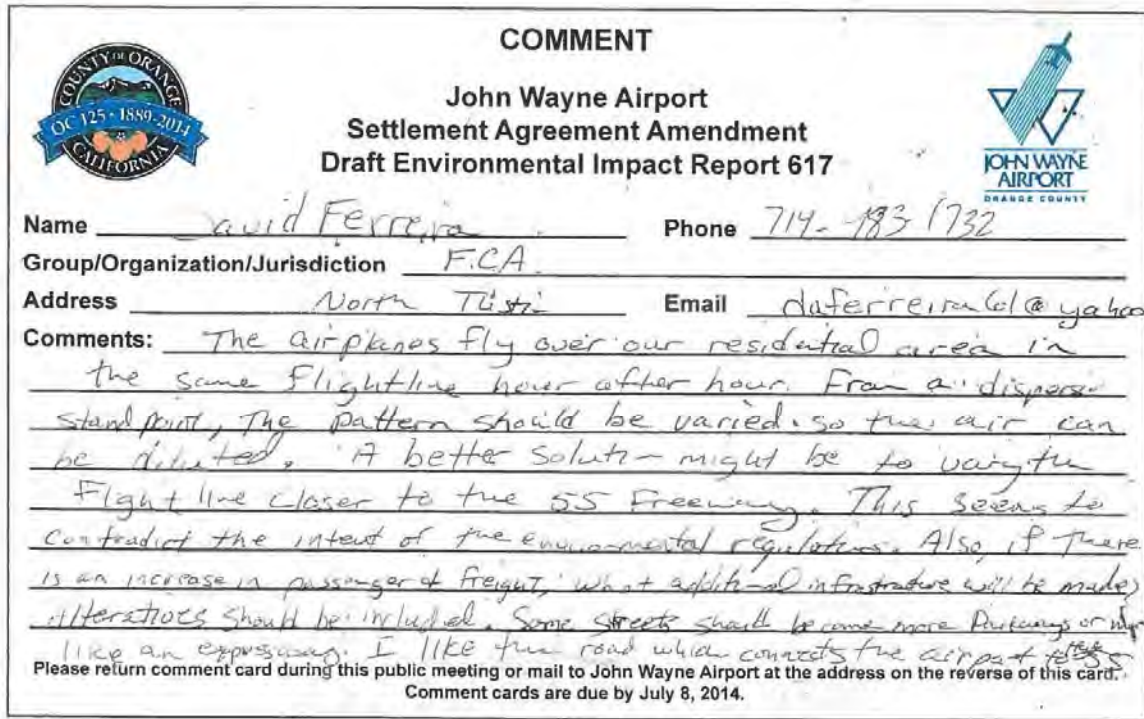 COMMENT
COUNTY OF ORANGE
OC 125 • 1889-2014
CALIFORNIA
John Wayne Airport
Settlement Agreement Amendment
Draft Environmental Impact Report 617
JOHN WAYNE
AIRPORT
ORANGE COUNTY
Name David Ferreira Phone 714-
Group/Organization/Jurisdiction F.C.A.
Address North Email
Comments: The airplanes fly over our residential area in
the same flightline hour after hour. From a
stand point, The pattern should be varied so the air can
be diluted. A better might be to vary the
Flight line closer to the 55 Freeway. This seems to
contradict the intent of the environmental regulations. Also, if there
is an increase in passenger freight, what additional infrastructure will be made,
should be included. Some streets should become more Parkways or
like an expressway. I like the road which connects the airport to 55
Please return comment card during this public meeting or mail to John Wayne Airport at the address on the reverse of this card.
Comment cards are due by July 8, 2014.